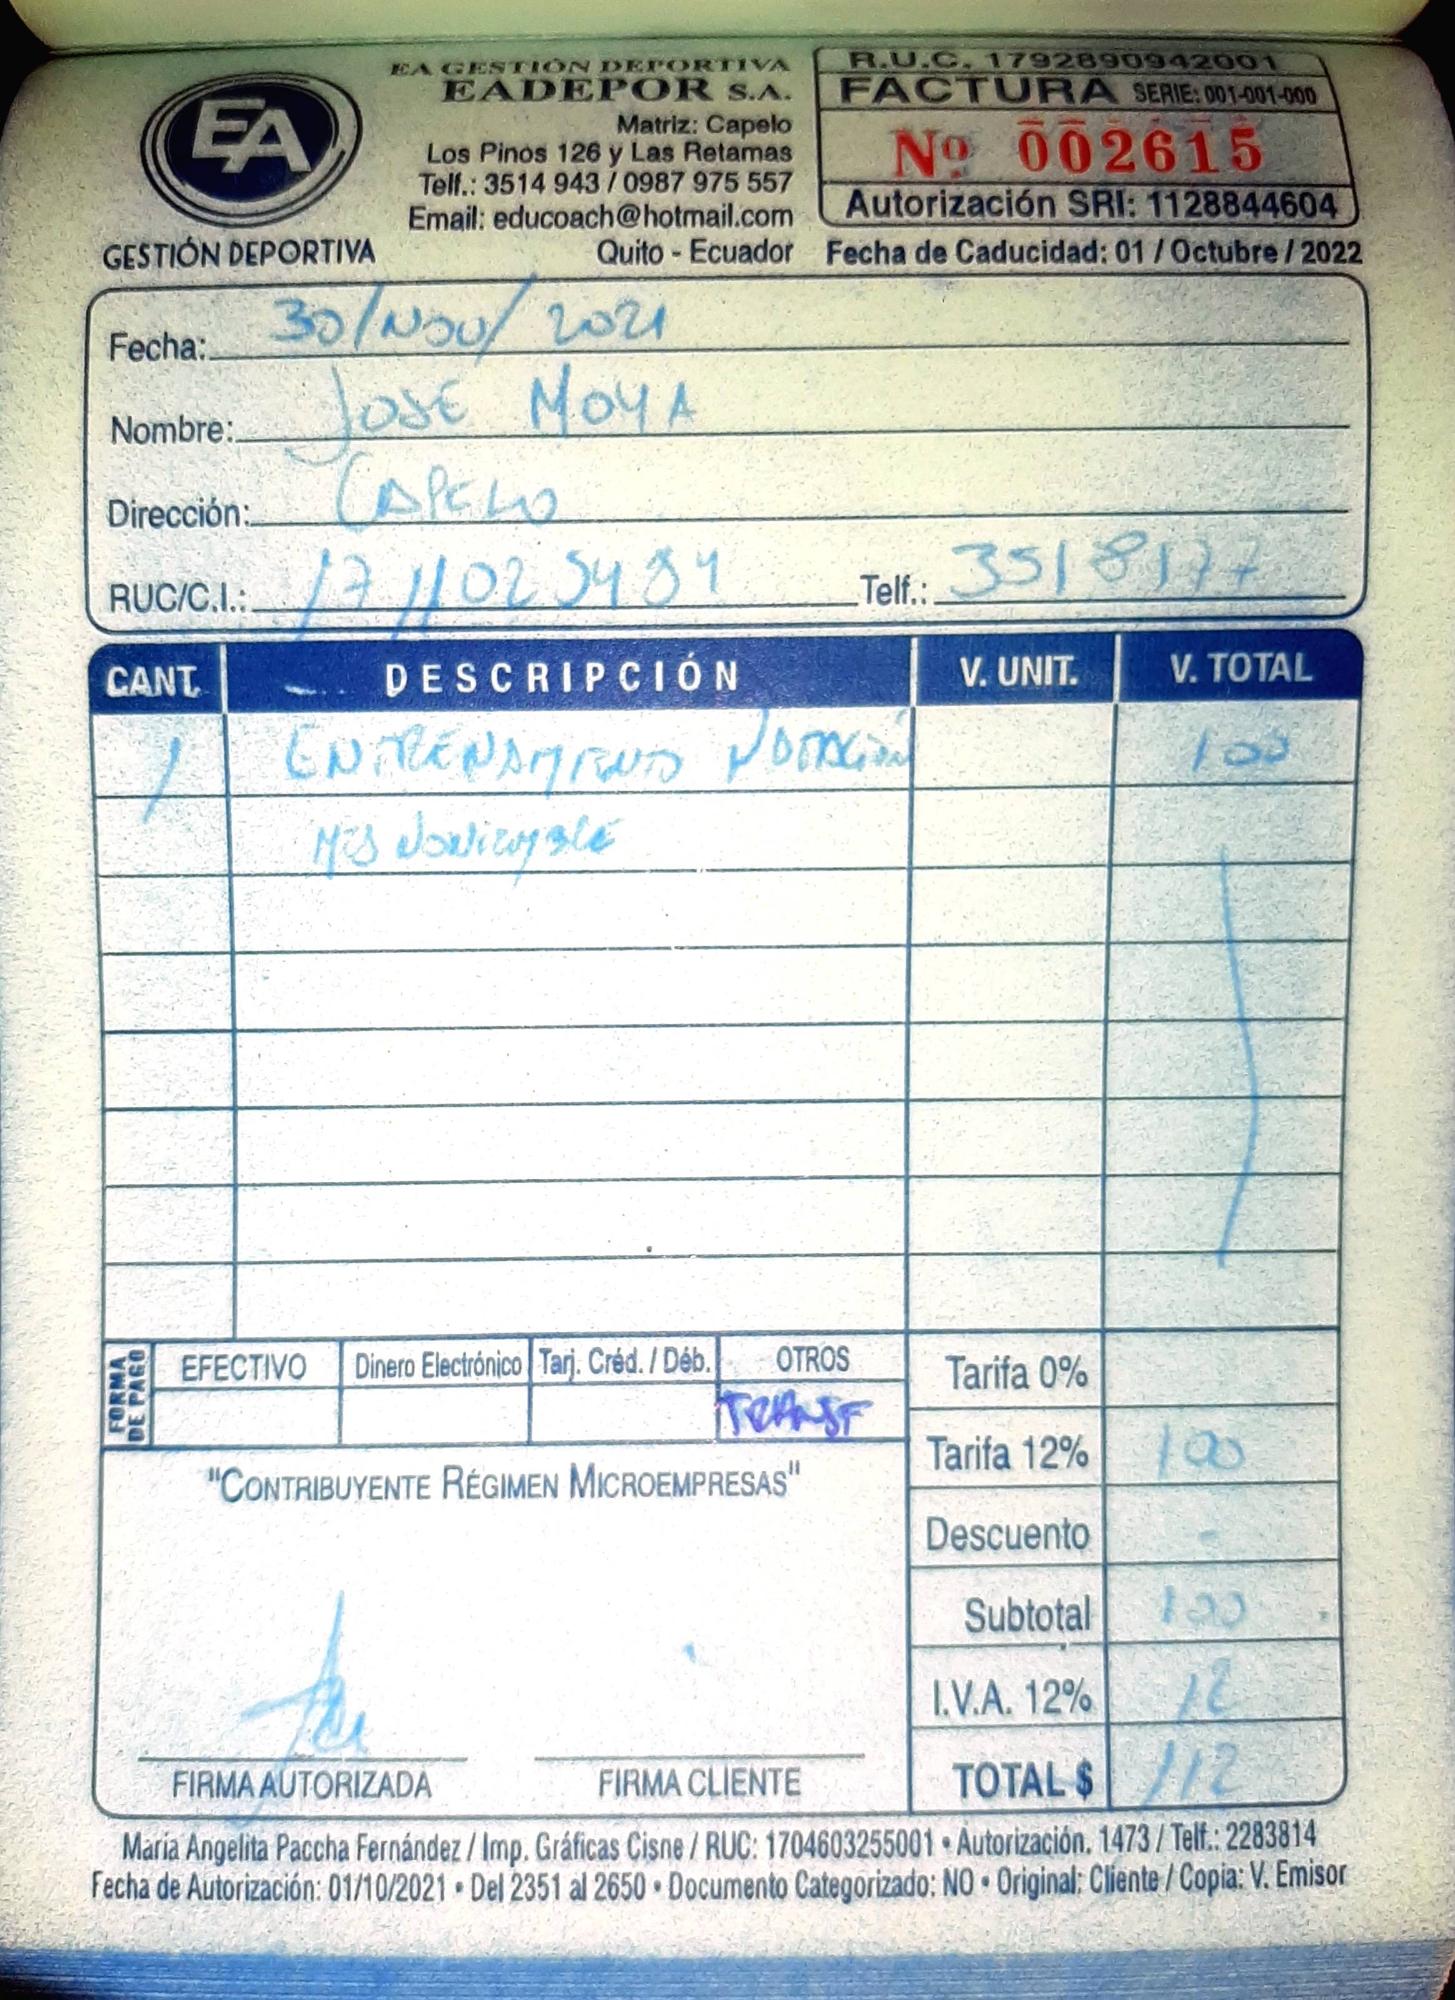 EA
GESTIÓN DEPORTIVA
EA GESTIÓN DEPORTIVA
EADEPOR S.A.
Matriz: Capelo
Los Pinos 126 y Las Retamas
Telf.: 3514 943 / 0987 975 557
Email: educoach@hotmail.com
Quito - Ecuador
R.U.C. 1792890942001
FACTURA SERIE: 001-001-000
Nº 002615
Autorización SRI: 1128844604
Fecha de Caducidad: 01 / Octubre / 2022
Fecha: 30/NOV/2021
Nombre: JOSE MOYA
Dirección: CAPELO
RUC/C.I.: Telf.: 3518177
CANT. DESCRIPCIÓN V. UNIT. V. TOTAL
1 ENTRENAMIENTO NATACIÓN 100
MES NOVIEMBRE
FORMA DE PAGO
EFECTIVO Dinero Electrónico Tarj. Créd. / Déb. OTROS
TRANSF
Tarifa 0%
Tarifa 12% 100
Descuento -
Subtotal 100
I.V.A. 12% 12
TOTAL $ 112
"CONTRIBUYENTE RÉGIMEN MICROEMPRESAS"
FIRMA AUTORIZADA FIRMA CLIENTE
María Angelita Paccha Fernández / Imp. Gráficas Cisne / RUC: 1704603255001 • Autorización. 1473 / Telf.: 2283814
Fecha de Autorización: 01/10/2021 • Del 2351 al 2650 • Documento Categorizado: NO • Original: Cliente / Copia: V. Emisor